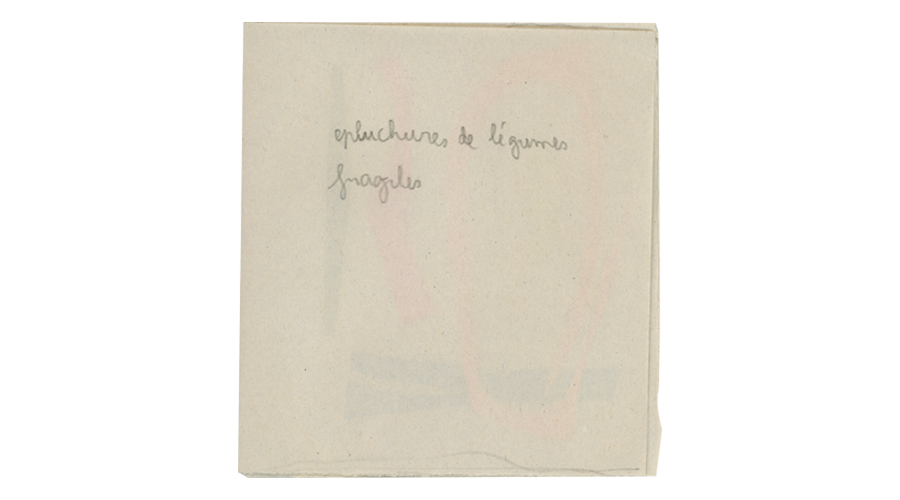 epluchures de légumes
fragiles